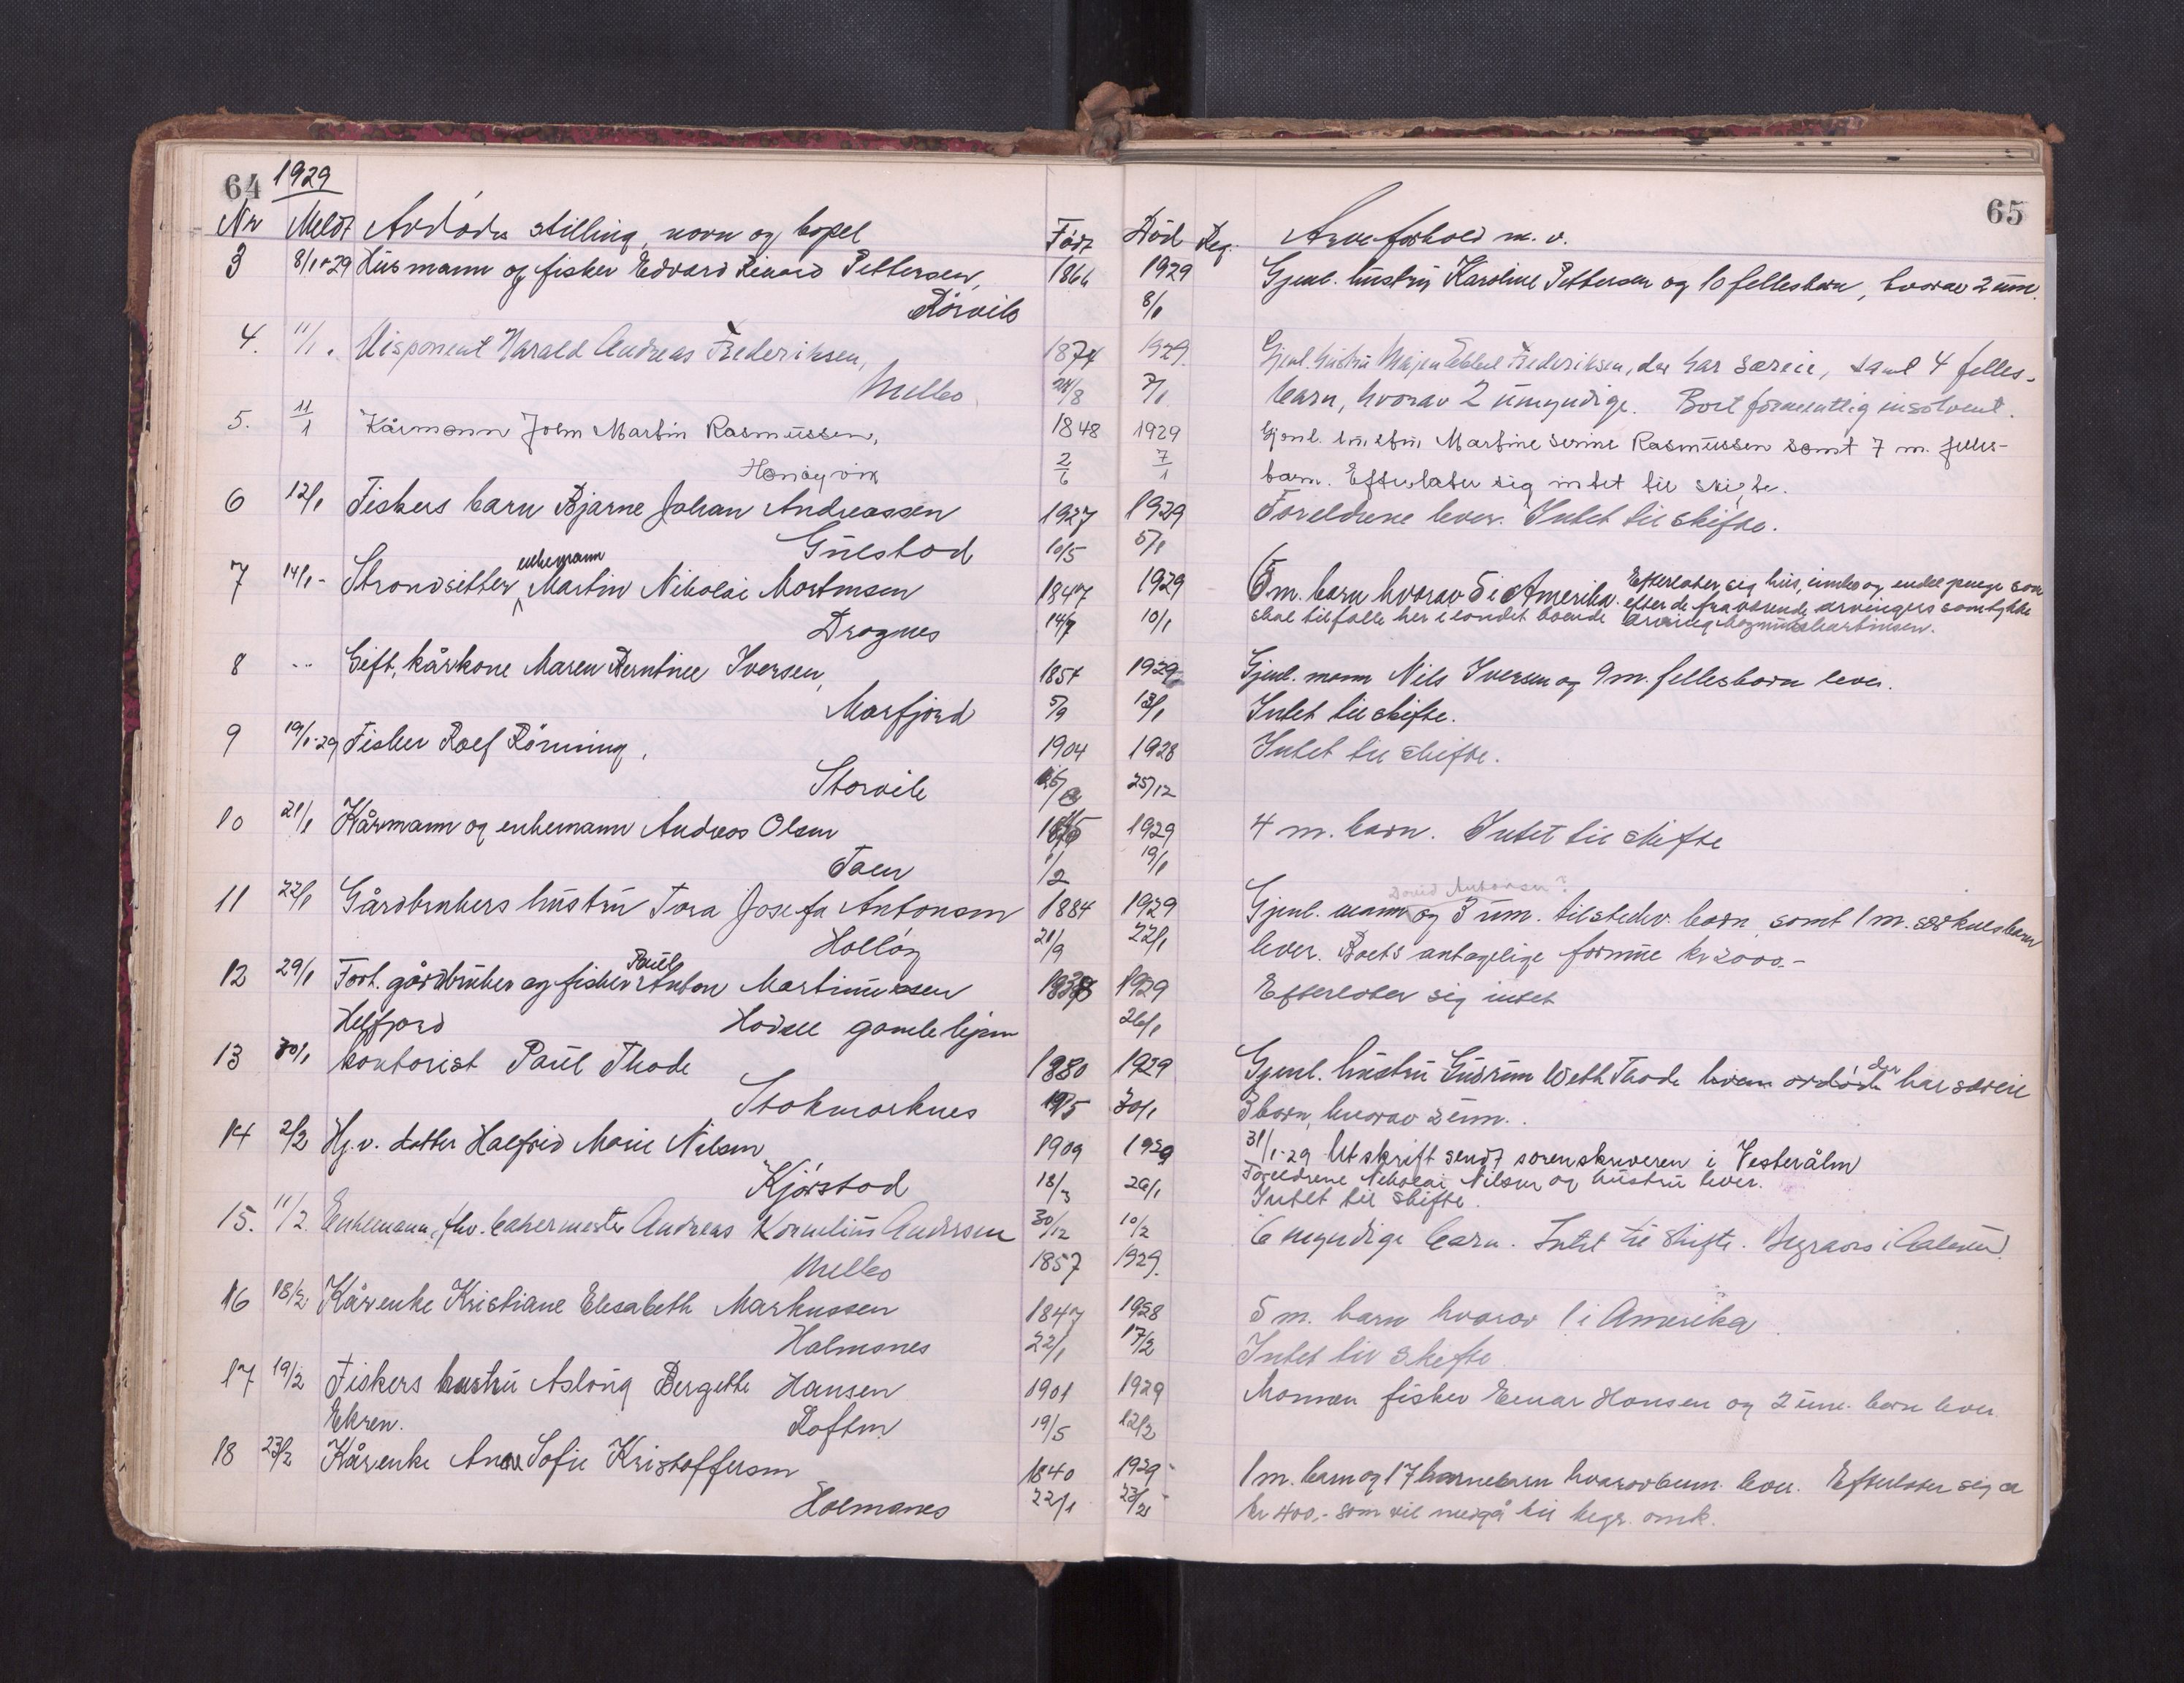 64 1929 65
Nr Meldt Avdödes stilling, navn og bopel Född Död Reg. Arveforhold m. v.
3 8/1-29 Husmann og fisker Edvard Rikard Pettersen, 1866 1929 Gjenl. hustru Karoline Pettersen og 10 fellesbarn, hvorav 2 um.
Rörvik 8/1
4. 11/1. Disponent Harald Andreas Frederiksen, 1874 1929. Gjenl. hustru Frederiksen, der har særeie, samt 4 felles-
Melbo 24/8 7/1 barn, hvorav 2 umyndige. Boet formentlig insolvent.
5. 11/1 Kårmann John Martin Rasmussen, 1848 1929 Gjenl. hustru Martine Serine Rasmussen samt 7 m. felles-
2/6 7/1 barn. Efterlater sig intet til skifte.
6 12/1 Fiskers barn Bjarne Johan Andreassen 1927 1929 Foreldrene lever. Intet til skifte.
Gulstad 10/5 5/1
7 14/1- Strandsitter enkemann Martin Nikolai Mortensen 1847 1929 6 m. barn hvorav 5 i Amerika. Efterlater sig hus, innbo og endel penge som
efter de fraværende arvingers samtykke
Dragnes 14/7 10/1 skal tilfalle her i landet boende arving Martinsen.
8 -- Gift, kårkone Maren Berntine Iversen, 1854 1929 Gjenl. mann Nils Iversen og 9 m. fellesbarn lever.
Marfjord 5/9 13/1 Intet til skifte.
9 19/1-29 Fisker Rolf Rönning, 1904 1928 Intet til skifte.
Storvik 25/12
10 21/1 Kårmann og enkemann Andreas Olsen 1929 4 m. barn. Intet til skifte
Taen 1/2 19/1
11 22/1 Gårdbrukers hustru Tora Josefa Antonsen 1884 1929 Gjenl. mann David Antonsen? og 3 um. tilstedev. barn, samt 1 m. særkulsbarn
Hollöy 21/9 22/1 lever. Boets antagelige formue kr 2000.-
12 29/1 Forh. gårdbruker og fisker Paul Anton Martinussen 1929 Efterlater sig intet
Helfjord Hadsel gamlehjem 26/1
13 30/1 kontorist Paul Thode 1880 1929 Gjenl. hustru Gudrun Weth Thode hvem avdöde der har særeie
Stokmarknes 19/5 30/1 3 barn, hvorav 2 um..
14 2/2 Hj.v. datter Halfrid Marie Nilsen 1909 1929 31/1-29 Utskrift sendt sorenskriveren i Vesterålen
Foreldrene Nikolai Nilsen og hustru lever.
Kjörstad 18/3 29/1 Intet til skifte.
15. 11/2. Enkemann, fhv. bakermester Andreas Kornelius Andersen 30/12 10/2 6 myndige barn. Intet til skifte. Begraves i
Melbo 1857 1929.
16 18/2. Kårenke Kristiane Elesabeth Markussen 1847 1928 5 m. barn hvorav 1 i Amerika.
Holmsnes 22/1 17/2 Intet til skifte.
17 19/2 Fiskers hustru Aslaug Bergette Hansen 1901 1929 Mannen fisker Einar Hansen og 2 um. barn lever
Ekren. Raften 19/5 12/2
18 23/2 Kårenke Ane Sofie Kristoffersen 1840 1929 1 m. barn og 17 barnebarn hvorav 6 um. lever. Efterlater sig ca
Holmsnes 22/1 23/2 kr 400,- som vil medgå til begr. omk.